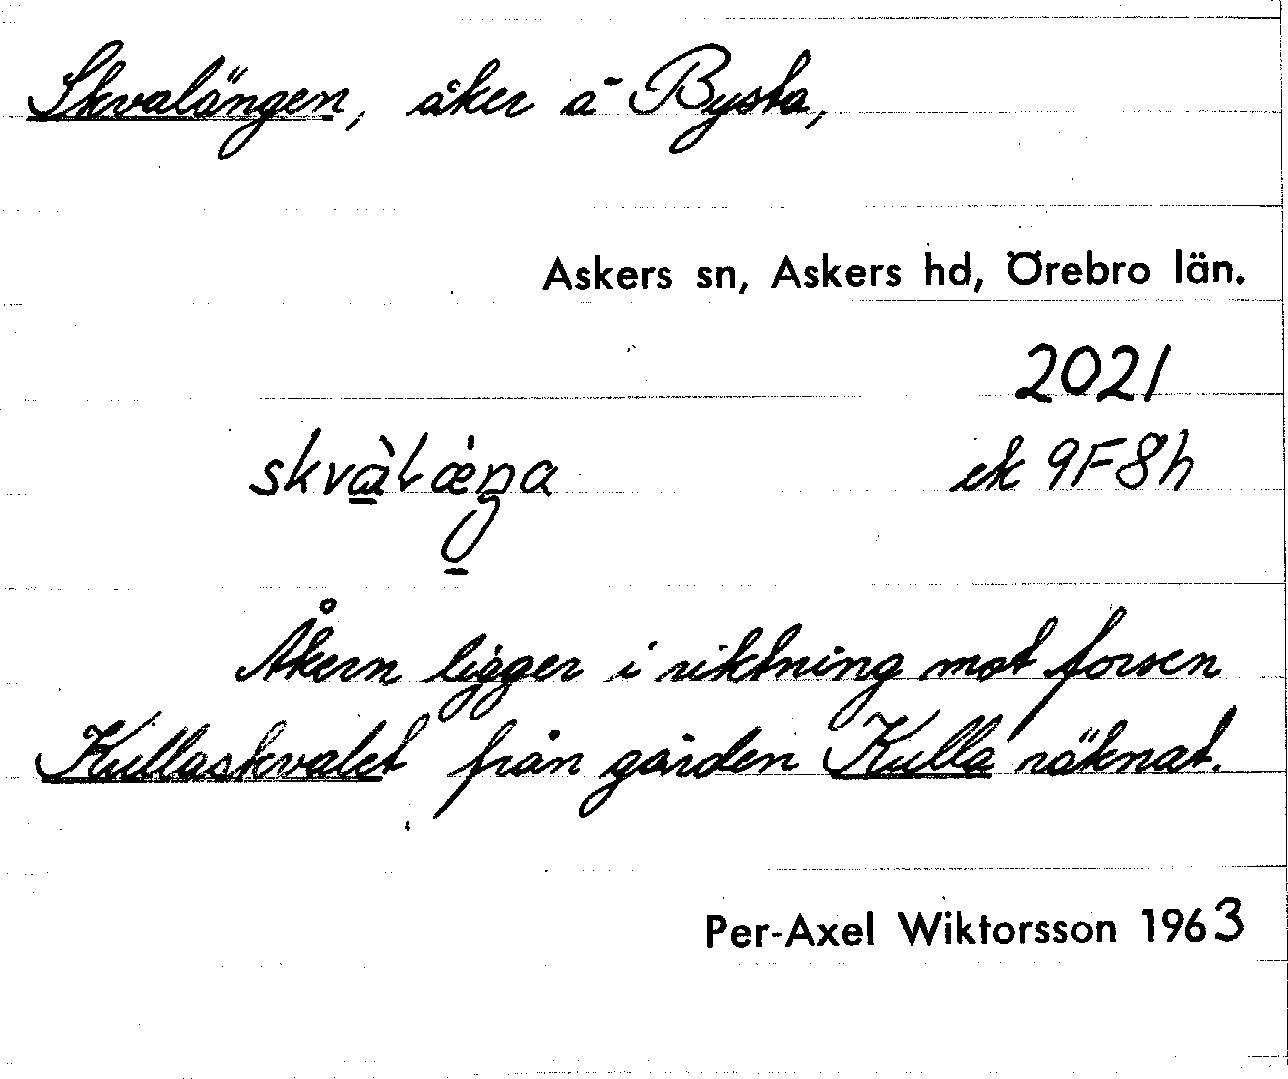 Skvalängen, åker å Bysta,
Askers sn, Askers hd, Örebro län.
2021
ek 9F8h
Åkern ligger i riktning mot forsen
Kullaskvalet från gården Kulla räknat.
Per-Axel Wiktorsson 1963